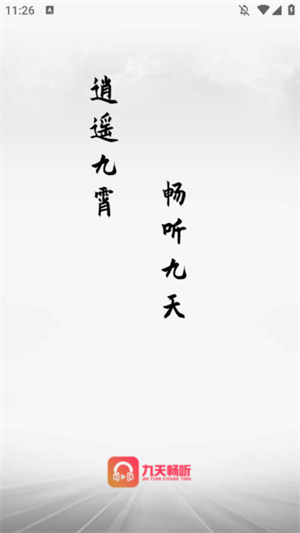 11:26
逍遥九霄
畅听九天
九天畅听
JIU TIAN CHANG TING